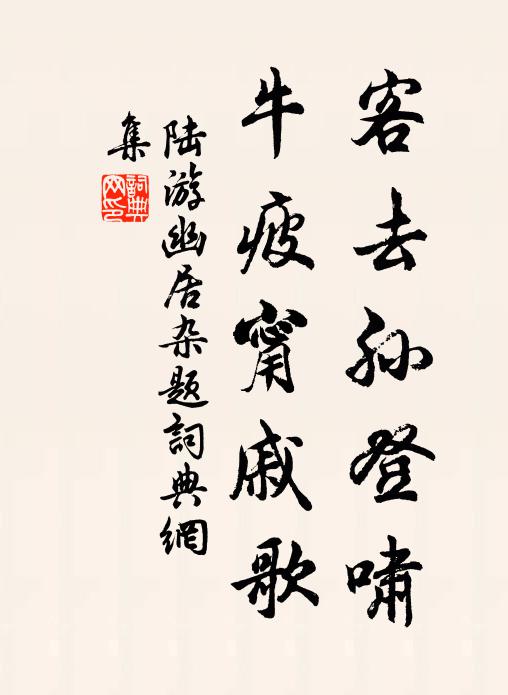 客去孙登啸
牛疲甯戚歌
陆游幽居杂题詞典網
集
詞典
网印